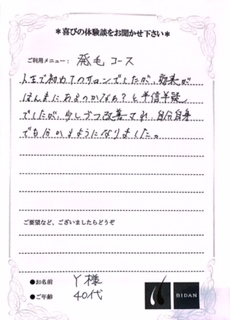 ＊喜びの体験談をお聞かせ下さい＊
ご利用メニュー： 発毛コース
人生で初めてのサロンでしたが、効果が
ほんまにあるのかなぁ？と半信半疑
でしたが、少しづつ改善され、自分自身
でも分かるようになりました。
ご要望など、ございましたらどうぞ
●お名前 Y様
●ご年齢 40代
BIDAN